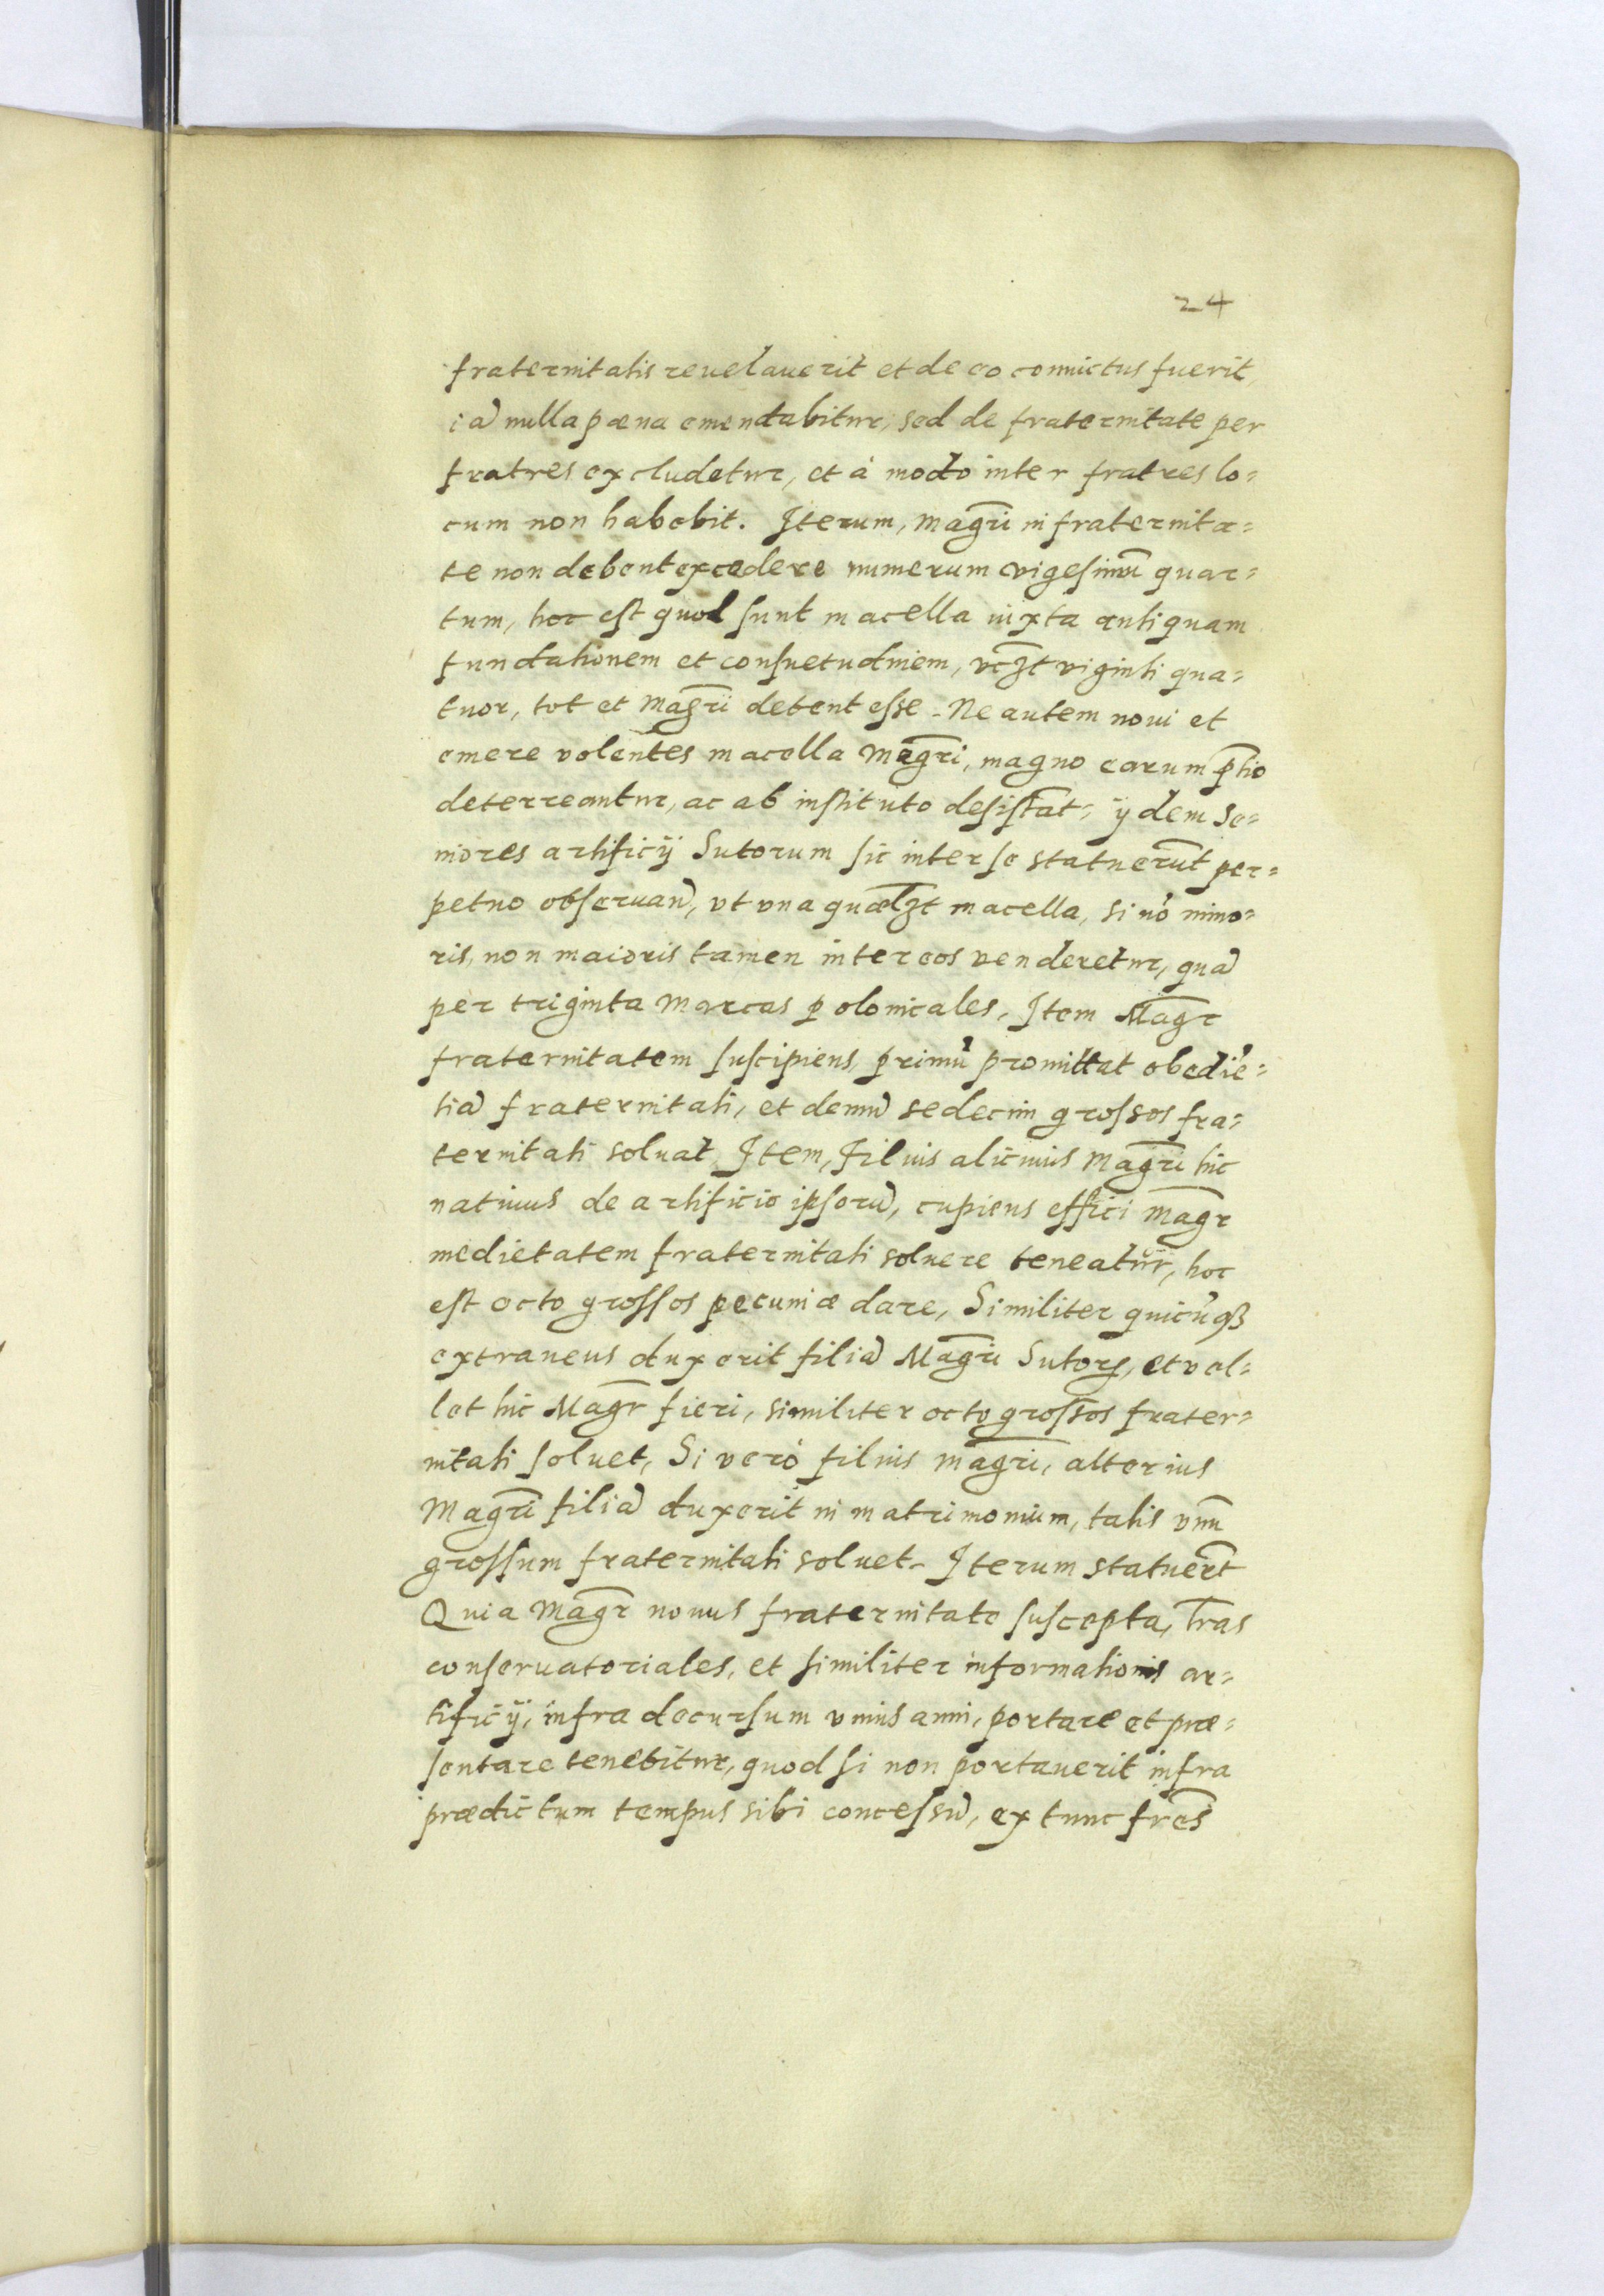 24
fraternitatis reuelauerit et de eo conuictus fuerit,
iã nulla pœna emendabitur, sed de fraternitate per
fratres excludetur, et à modo inter fratres lo=
cum non habebit. Iterum, magr̃i in fraternita=
te non debent excedere numerum vigesimũ quar=
tum, hoc est quod sunt macella iuxta antiquam
fundationem et consuetudinem, vcꝫt viginti qua=
tuor, tot et magr̃i debent esse. Ne autem noui et
emere volentes macella magr̃i, magno earum p̃tio
deterreantur, ac ab instituto desistãt, ijdem se=
niores artificij Sutorum sic inter se statuerũt per=
petuo obseruañ, vt vna quælꝫt macella, si nõ mino=
ris, non maioris tamen inter eos venderetur, quã
per triginta marcas polonicales, Item Magr̃
fraternitatem suscipiens, primũ promittat obediẽ=
tiã fraternitati, et demũ sedecim grossos fra=
ternitati soluat. Item, filius alicuius magr̃i hic
natiuus de artificio ipsorũ, cupiens effici magr̃
medietatem fraternitati soluere teneatur, hoc
est octo grossos pecuniæ dare, Similiter quicũqꝫ
extraneus duxerit filiã Magr̃i Sutorꝫ, et vel=
let hic Magr̃ fieri, similiter octo grossos frater=
nitati soluet, Si verò filius magr̃i, alterius
Magr̃i filiã duxerit in matrimonium, talis vnũ
grossum fraternitati soluet. Iterum statuer̃t
Quia Magr̃ nouus fraternitate suscepta, l̃ras
conseruatoriales, et similiter informationis ar=
tificij, infra decursum vnius anni, portare et præ=
sentare tenebitur, quod si non portauerit infra
prædictum tempus sibi concessũ, ex tunc fr̃es